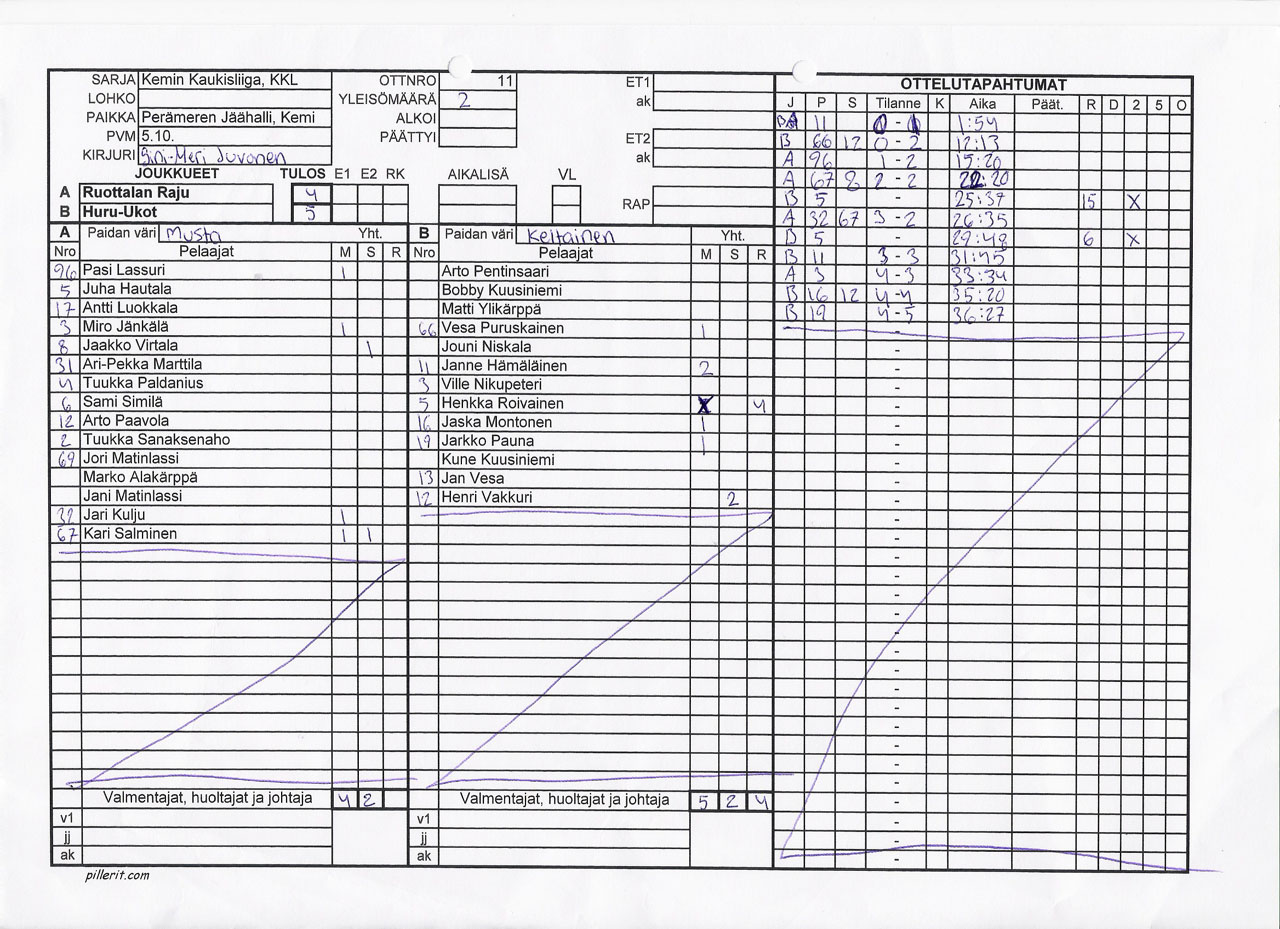 SARJA Kemin Kaukisliiga, KKL OTTNRO 11 ET1
LOHKO YLEISÖMÄÄRÄ 2 ak
PAIKKA Perämeren Jäähalli, Kemi ALKOI
PVM 5.10. PÄÄTTYI ET2
KIRJURI Sini-Meri Juvonen ak
JOUKKUEET TULOS E1 E2 RK AIKALISÄ VL
A Ruottalan Raju 4
B Huru-Ukot 5 RAP
A Paidan väri Musta Yht.
Nro Pelaajat M S R
96 Pasi Lassuri 1
5 Juha Hautala
17 Antti Luokkala
3 Miro Jänkälä 1
8 Jaakko Virtala 1
31 Ari-Pekka Marttila
4 Tuukka Paldanius
6 Sami Similä
12 Arto Paavola
2 Tuukka Sanaksenaho
69 Jori Matinlassi
Marko Alakärppä
Jani Matinlassi
32 Jari Kulju 1
67 Kari Salminen 1 1
Valmentajat, huoltajat ja johtaja 4 2
v1
jj
ak
B Paidan väri Keltainen Yht.
Nro Pelaajat M S R
Arto Pentinsaari
Bobby Kuusiniemi
Matti Ylikärppä
66 Vesa Puruskainen 1
Jouni Niskala
11 Janne Hämäläinen 2
3 Ville Nikupeteri
5 Henkka Roivainen 4
16 Jaska Montonen 1
19 Jarkko Pauna 1
Kune Kuusiniemi
13 Jan Vesa
12 Henri Vakkuri 2
Valmentajat, huoltajat ja johtaja 5 2 4
v1
jj
ak
OTTELUTAPAHTUMAT
J P S Tilanne K Aika Päät. R D 2 5 O
B 11 0 - 1 1:54
B 66 12 0 - 2 12:13
A 96 1 - 2 15:20
A 67 8 2 - 2 22:20
B 5 - 25:37 15 X
A 32 67 3 - 2 26:35
B 5 - 29:48 6 X
B 11 3 - 3 31:45
A 3 4 - 3 33:34
B 16 12 4 - 4 35:20
B 19 4 - 5 36:27
pillerit.com